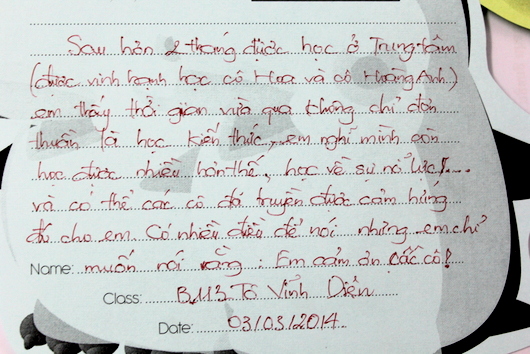 Sau hơn 2 tháng được học ở Trung tâm
(được vinh hạnh học cô Hoa và cô Hoàng Anh)
em thấy thời gian vừa qua không chỉ đơn
thuần là học kiến thức, em nghĩ mình còn
học được nhiều hơn thế, học về sự nỗ lực!....
và có thể các cô đã truyền được cảm hứng
đó cho em. Có nhiều điều để nói nhưng em chỉ
Name: muốn nói rằng : Em cảm ơn các cô!
Class: BM3. Tô Vĩnh Diện
Date: 03/03/2014